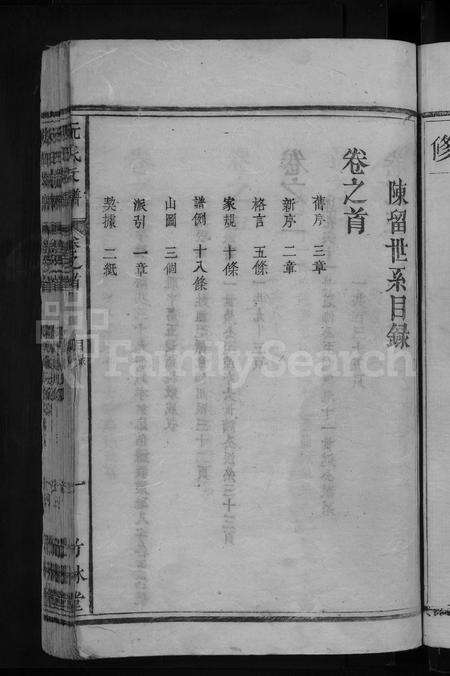 修
陳留世系目錄
卷之首
舊序 三章
新序 二章
格言 五條
家規 十條
譜例 十八條
山圖 三個
派引 一章
契據 二紙
阮氏支譜 卷之首 目錄 一 竹林堂
FamilySearch